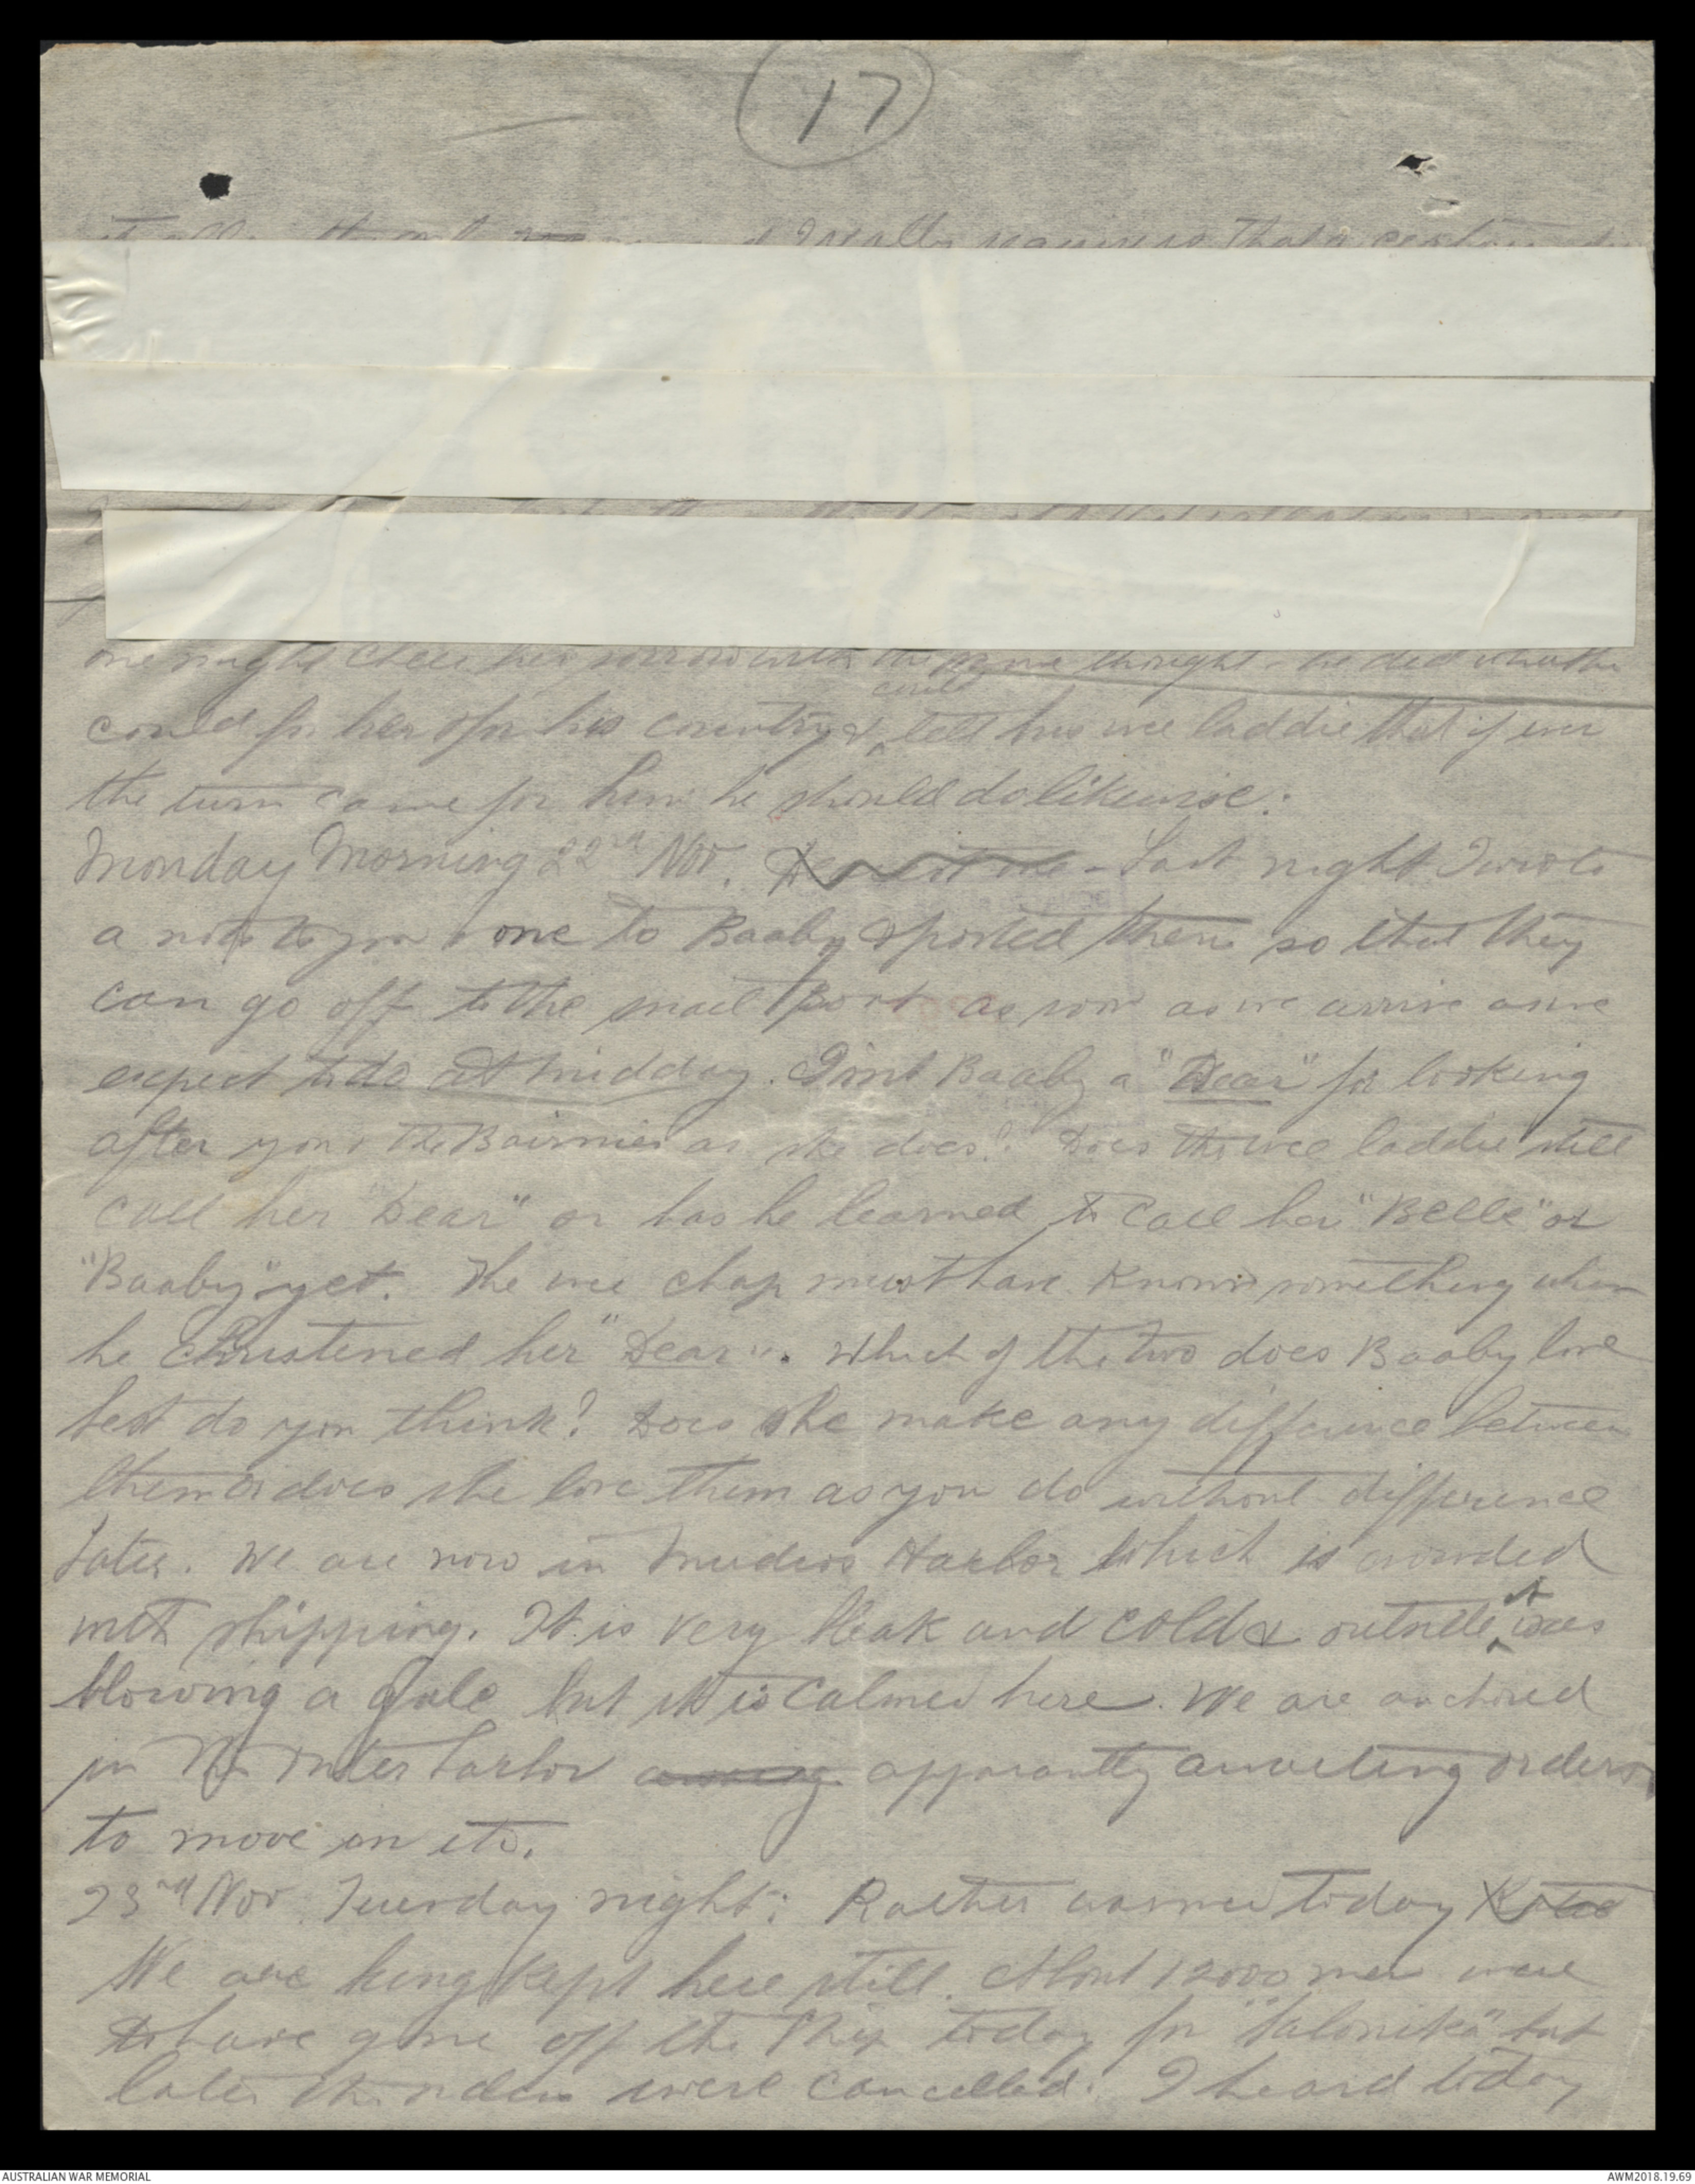 17
I really
one might cheer her sorrow with the same thought - he did what he
could for her & for his country & could tell his wee laddie that if ever
the turn came for him he should do likewise:
Monday Morning 22nd Nov. Last night I wrote
a note to you & one to Baaby & posted them so that they
can go off to the mail boat as soon as we arrive as we
expect to do at midday. Isn't Baaby a "Dear" for looking
after you & the Bairnies as she does? Does the wee laddie still
call her "Dear" or has he learned to call her "Belle" or
"Baaby" yet. The wee chap must have known something when
he christened her "Dear". Which of the two does Baaby love
best do you think? Does she make any difference between
them or does she love them as you do without difference
Later. We are now in Mudros Harbor which is crowded
with shipping. It is very bleak and cold & outside it was
blowing a gale but it is calmer here. We are anchored
in the outer harbor apparantly awaiting orders
to move in etc.
23rd Nov. Tuesday night: Rather warmer today
We are being kept here still. About 12000 men were
to have gone off the ship today for "Salonika" but
later the orders were cancelled. I heard today
AUSTRALIAN WAR MEMORIAL
AWM2018.19.69